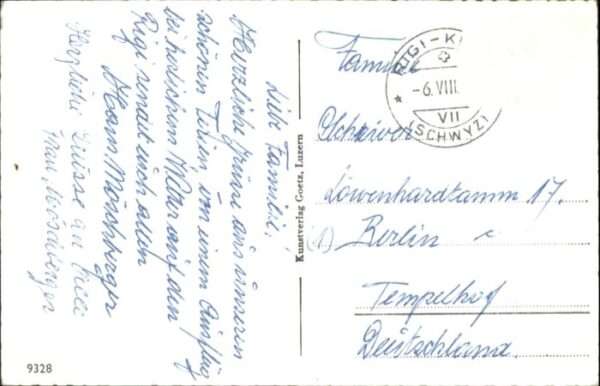 Liebe Familie!
Herzliche Grüße aus unseren
schönen Ferien, von einem Ausflug
bei herrlichem Wetter auf den
Rigi sendet euch allen
Herzliche Grüsse an
Frau
Kunstverlag Goetz, Luzern
9328
RIGI-K
-6.VIII
VII
(SCHWYZ)
Familie
Löwenhardtdamm 17.
(1) Berlin
Tempelhof
Deutschland.